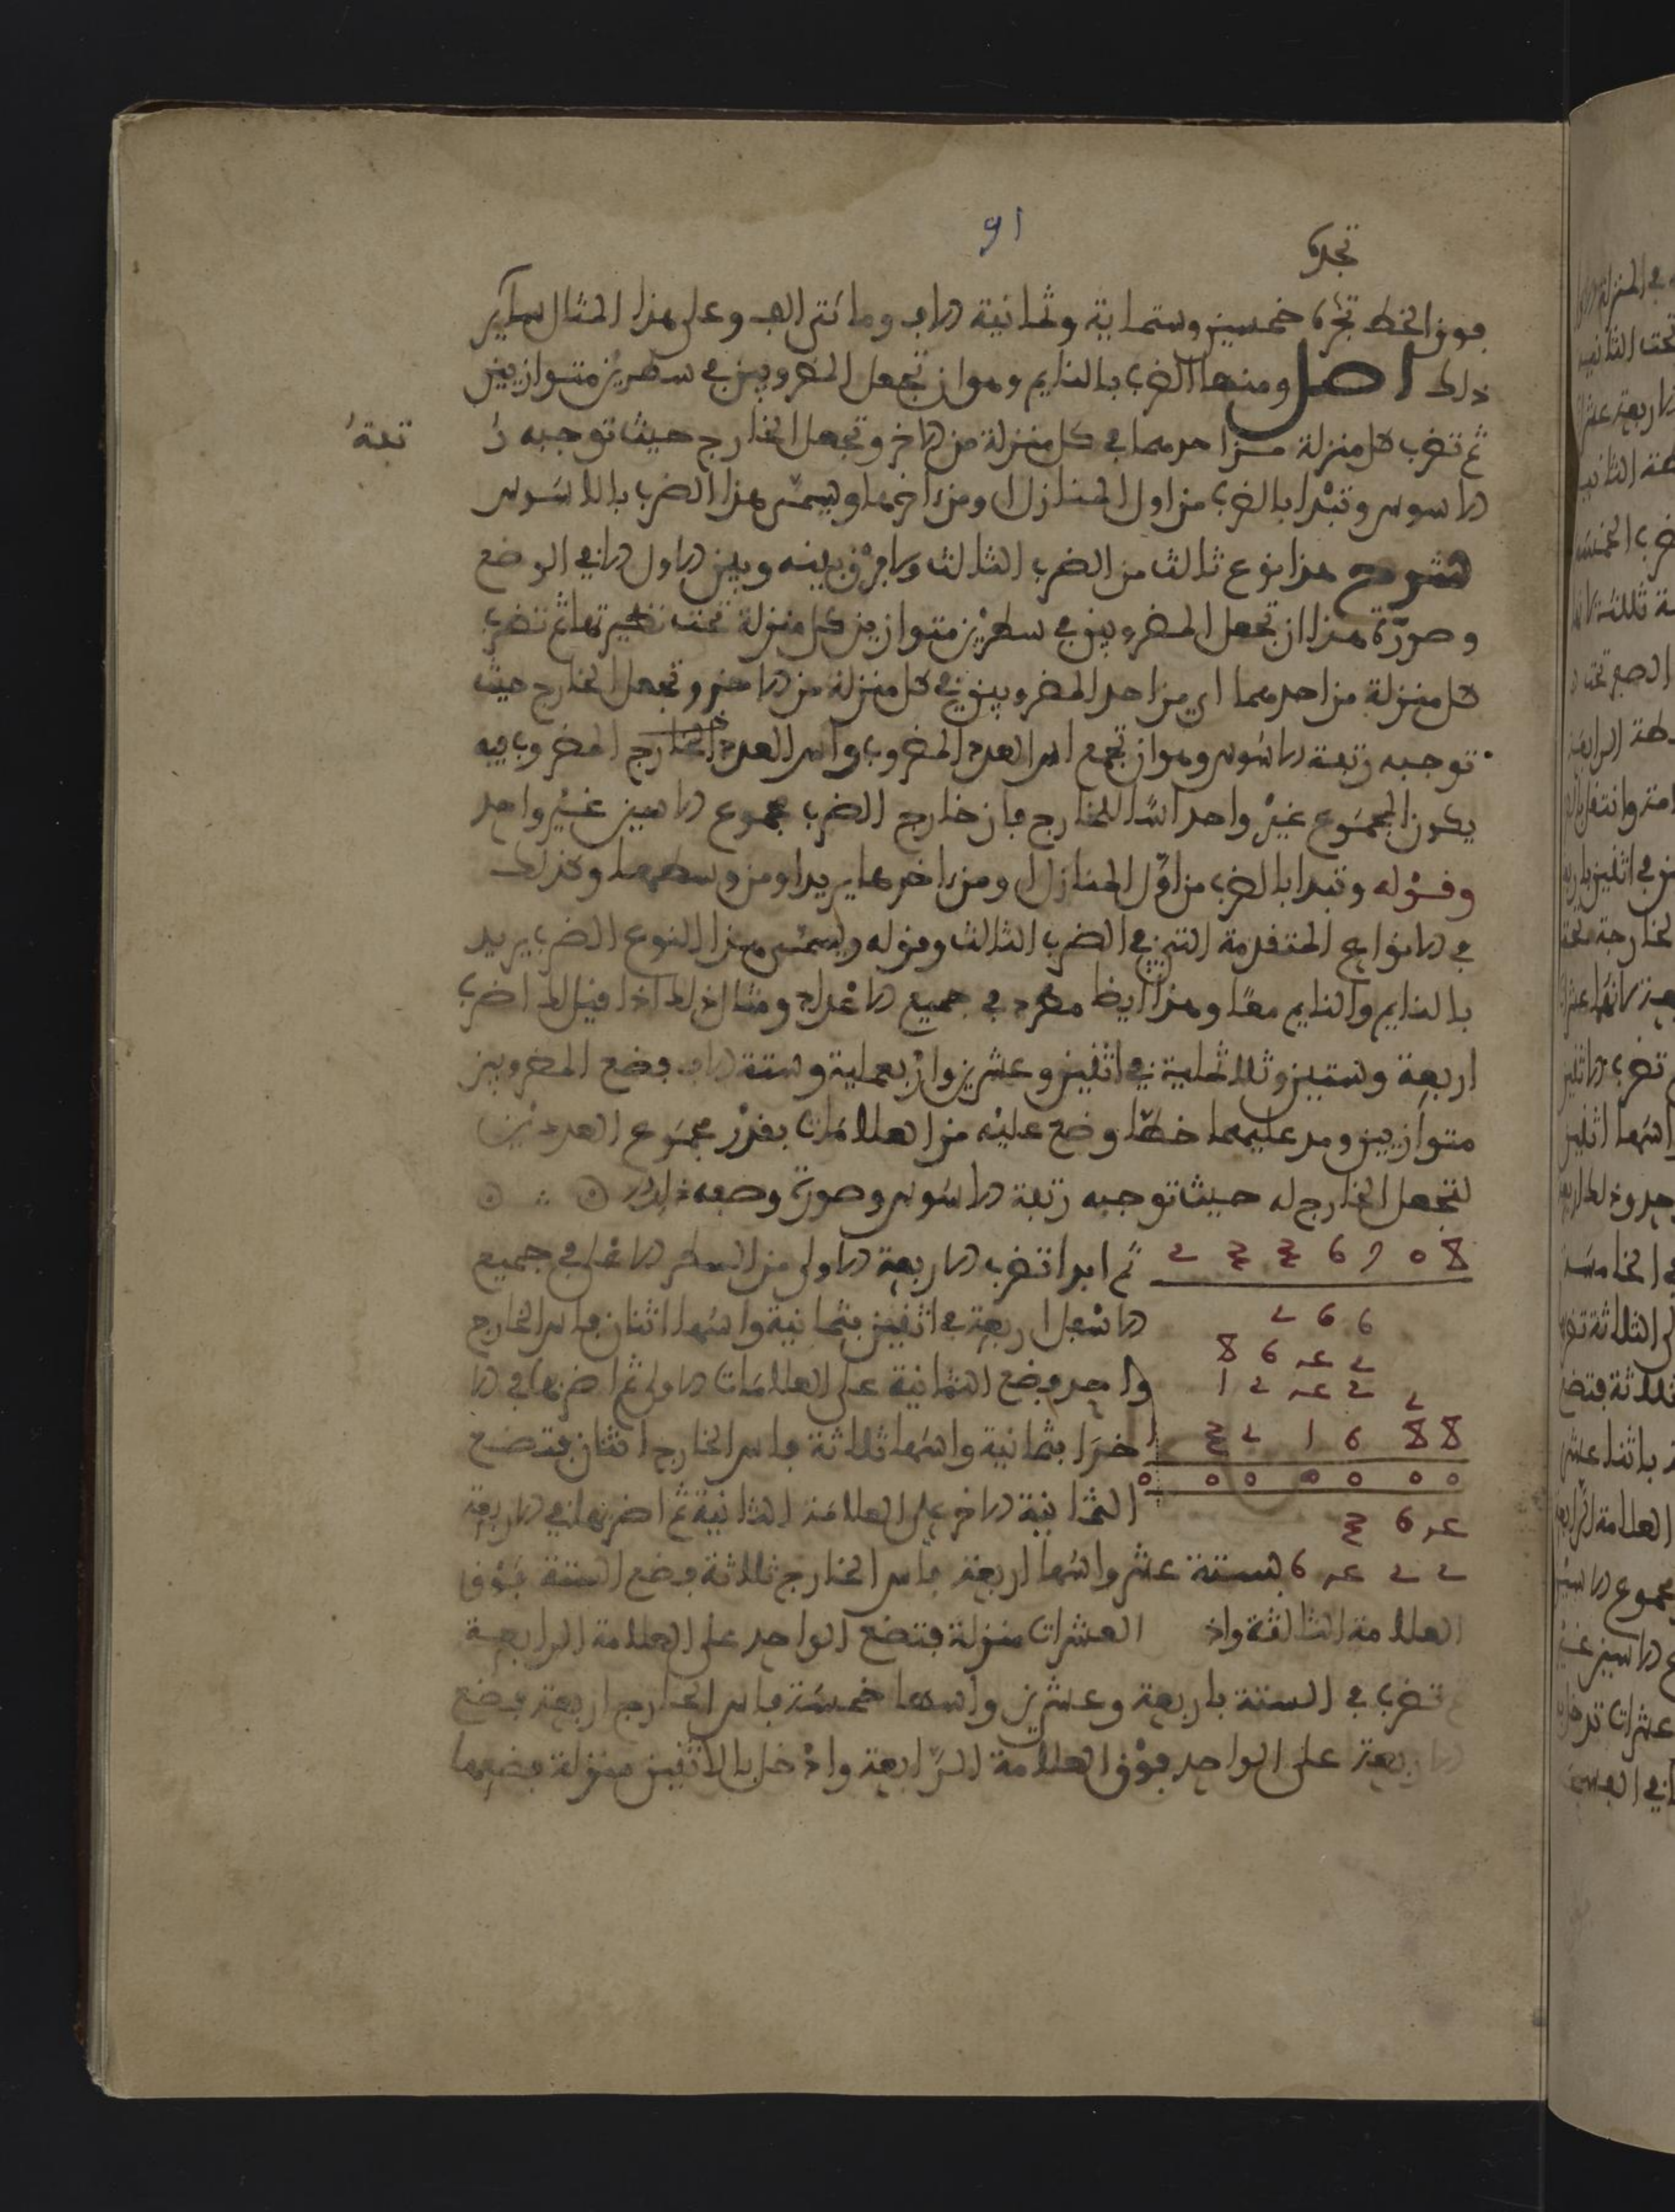 91
تجده
فوق الخط تجده خمسين وستماية وثمانية الاف ومائتي الف وعلى هذا المثال ساير
ذلك اصل ومنها الضرب بالنايم وهو ان تجعل المضروبين في سطرين متوازيين
ثم تضرب كل منزلة من احدهما في كل منزلة من الاخر وتجعل الخارج حيث توجبه رتبة
الاسوس وتبدا بالضرب من اول المنازل او من اخرها ويسمى هذا الضرب بالاسوس
شرح هذا نوع ثالث من الضرب الثالث ولا فرق بينه وبين الاول الا في الوضع
وصورة هذا ان تجعل المضروبين في سطرين متوازيين كل منزلة تحت نظيرتها ثم تضرب
كل منزلة من احدهما اي من احد المضروبين في كل منزلة من الاخر وتجعل الخارج حيث
توجبه رتبة الاسوس وهو ان تجمع اس العدد المضروب واس العدد الخارج المضروب فيه
يكون المجموع غير واحد اسا للخارج فان خارج الضرب مجموع الاسين غير واحد
وقوله وتبدا بالضرب من اول المنازل او من اخرها يريد او من وسطها وكذلك
في الانواع المتقدمة التي في الضرب الثالث وقوله ويسمى هذا النوع الضرب يريد
بالنايم والنايم معا وهذا ايضا مطرد في جميع الاعداد ومثال ذلك اذا قيل لك اضرب
اربعة وستين وثلاثماية في اثنين وعشرين واربعماية وستة الاف فضع المضروبين
متوازيين ومد عليهما خطا وضع عليه من العلامات بقدر مجموع العددين
لتجعل الخارج له حيث توجبه رتبة الاسوس وصورة وضعه
ثم ابدا تضرب الاربعة الاولى من السطر الاعلى في جميع
الاسفل اربعة في اثنين بثمانية واسها اثنان فاس الخارج
واحد فضع الثمانية على العلامات الاولى ثم اضربها في الا
خرا بثمانية واسها ثلاثة فاس الخارج اثنان فتضع
الثمانية الاخر على العلامة الثانية ثم اضربها في الاربعة
بستة عشر واسها اربعة فاس الخارج ثلاثة فضع الستة فوق
العلامة الثالثة واد العشرات منزلة فتضع الواحد على العلامة الرابعة
ثم تضرب في الستة باربعة وعشرين واسها خمسة فاس الخارج اربعة فضع
الاربعة على الواحد فوق العلامة الرابعة وادخل بالاثنين منزلة فضعهما